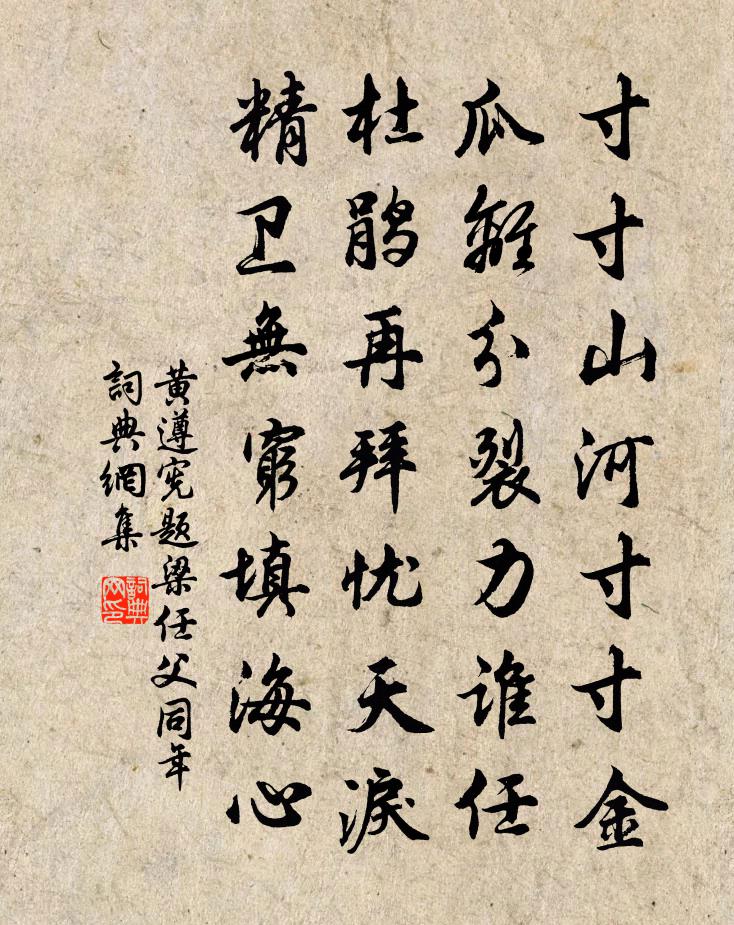 寸寸山河寸寸金
瓜離分裂力谁任
杜鹃再拜忧天淚
精卫無窮填海心
黄遵宪题梁任父同年
詞典網集
詞典网印